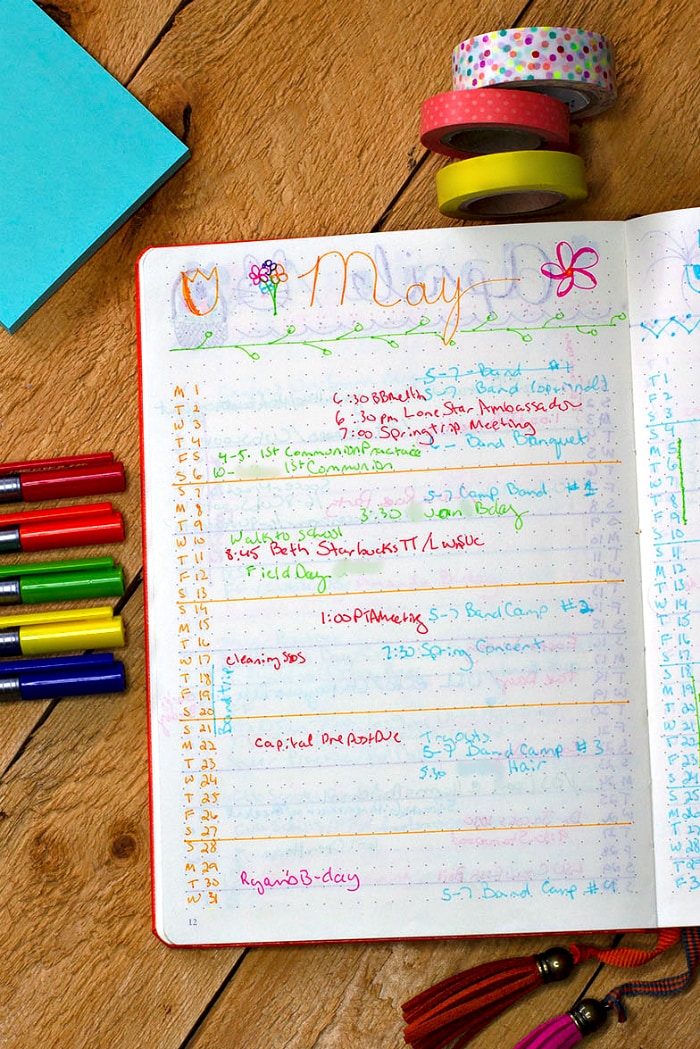 May
5-7 Band #1
M 1 6:30 BB Meeting 5-7 Band (optional)
T 2 6:30 pm Lone Star Ambassador
W 3 7:00 Spring trip Meeting
T 4 Band Banquet
F 5 4-5 1st Communion Practice
S 6 10- 1st Communion
S 7
M 8 5-7 Camp Band #1
T 9 3:30 Bday
W 10 Walk to school
T 11 8:45 Beth Starbucks TT/
F 12 Field Day
S 13
S 14
M 15 1:00 PTA Meeting 5-7 Band Camp #2
T 16
W 17 cleaning 7:30 Spring Concert
T 18 Band trip
F 19
S 20
S 21
M 22 Capital One Post Due Tryouts
T 23 5-7 Band Camp #3
W 24 5:30 Hair
T 25
F 26
S 27
S 28
M 29
T 30 Ryan's B-day
W 31 5-7 Band Camp #4
12
T 1
F 2
S 3
S 4
M 5
T 6
W 7
T 8
F 9
S 10
S 11
M 12
T 13
W 14
T 15
F 16
S 17
S 18
M 19
T 20
W 21
T 22
F 23
S 24
S 25
M 26
T 27
W 28